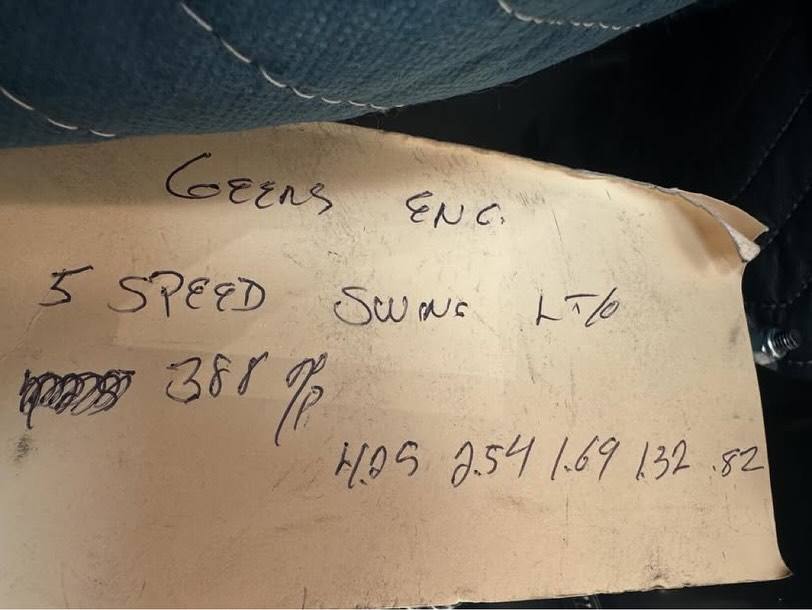 GEERS ENG.
5 SPEED SWING LT/O
388 O/P
4.25 2.54 1.69 1.32 .82